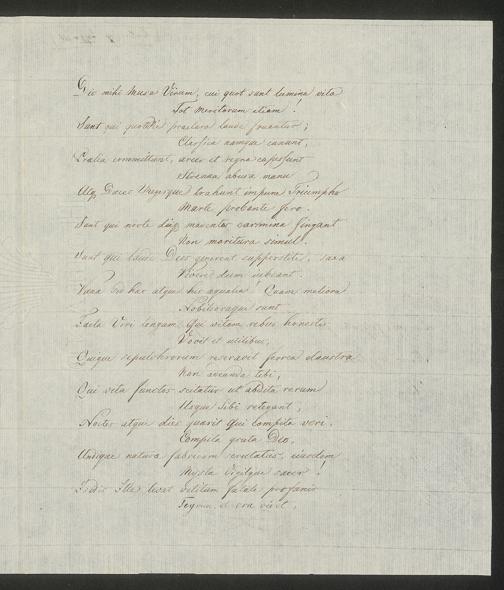 Dic mihi Musa Virum, cui quot sunt lumina vita
Tot meritorum etiam!
Sunt qui quotidie praeclara laude fruantur;
Classica namque canunt,
Praelia committunt, arces et regna capessunt
Strenua abusa manu
Atq Duces trahunt impura Triumpho
Marte probante fero.
Sunt qui nocte dieq maventes carmina fingant
Non moritura simul.
Sunt qui laude Deos generent superstites, saxa
dum subeant.
Vana haec atque his aequalia! Quam meliora
Nobilioraque sunt
Facta Viri longam, Qui vitam rebus honestis
Vovit et utilibus,
Quique sepulchrorum reseravit ferrea claustra
Non adeunda tibi,
Qui vita functos scitatur ut abdita rerum
Usque sibi retegant,
Noctes atque dies quaerit qui compita veri,
Compita grata Deo,
Undique naturae fabricam scrutatus, eiusdem
Mysta Vigilque sacer!
Ille licet velitum fatale profanis
Tegmen, et ora videt.